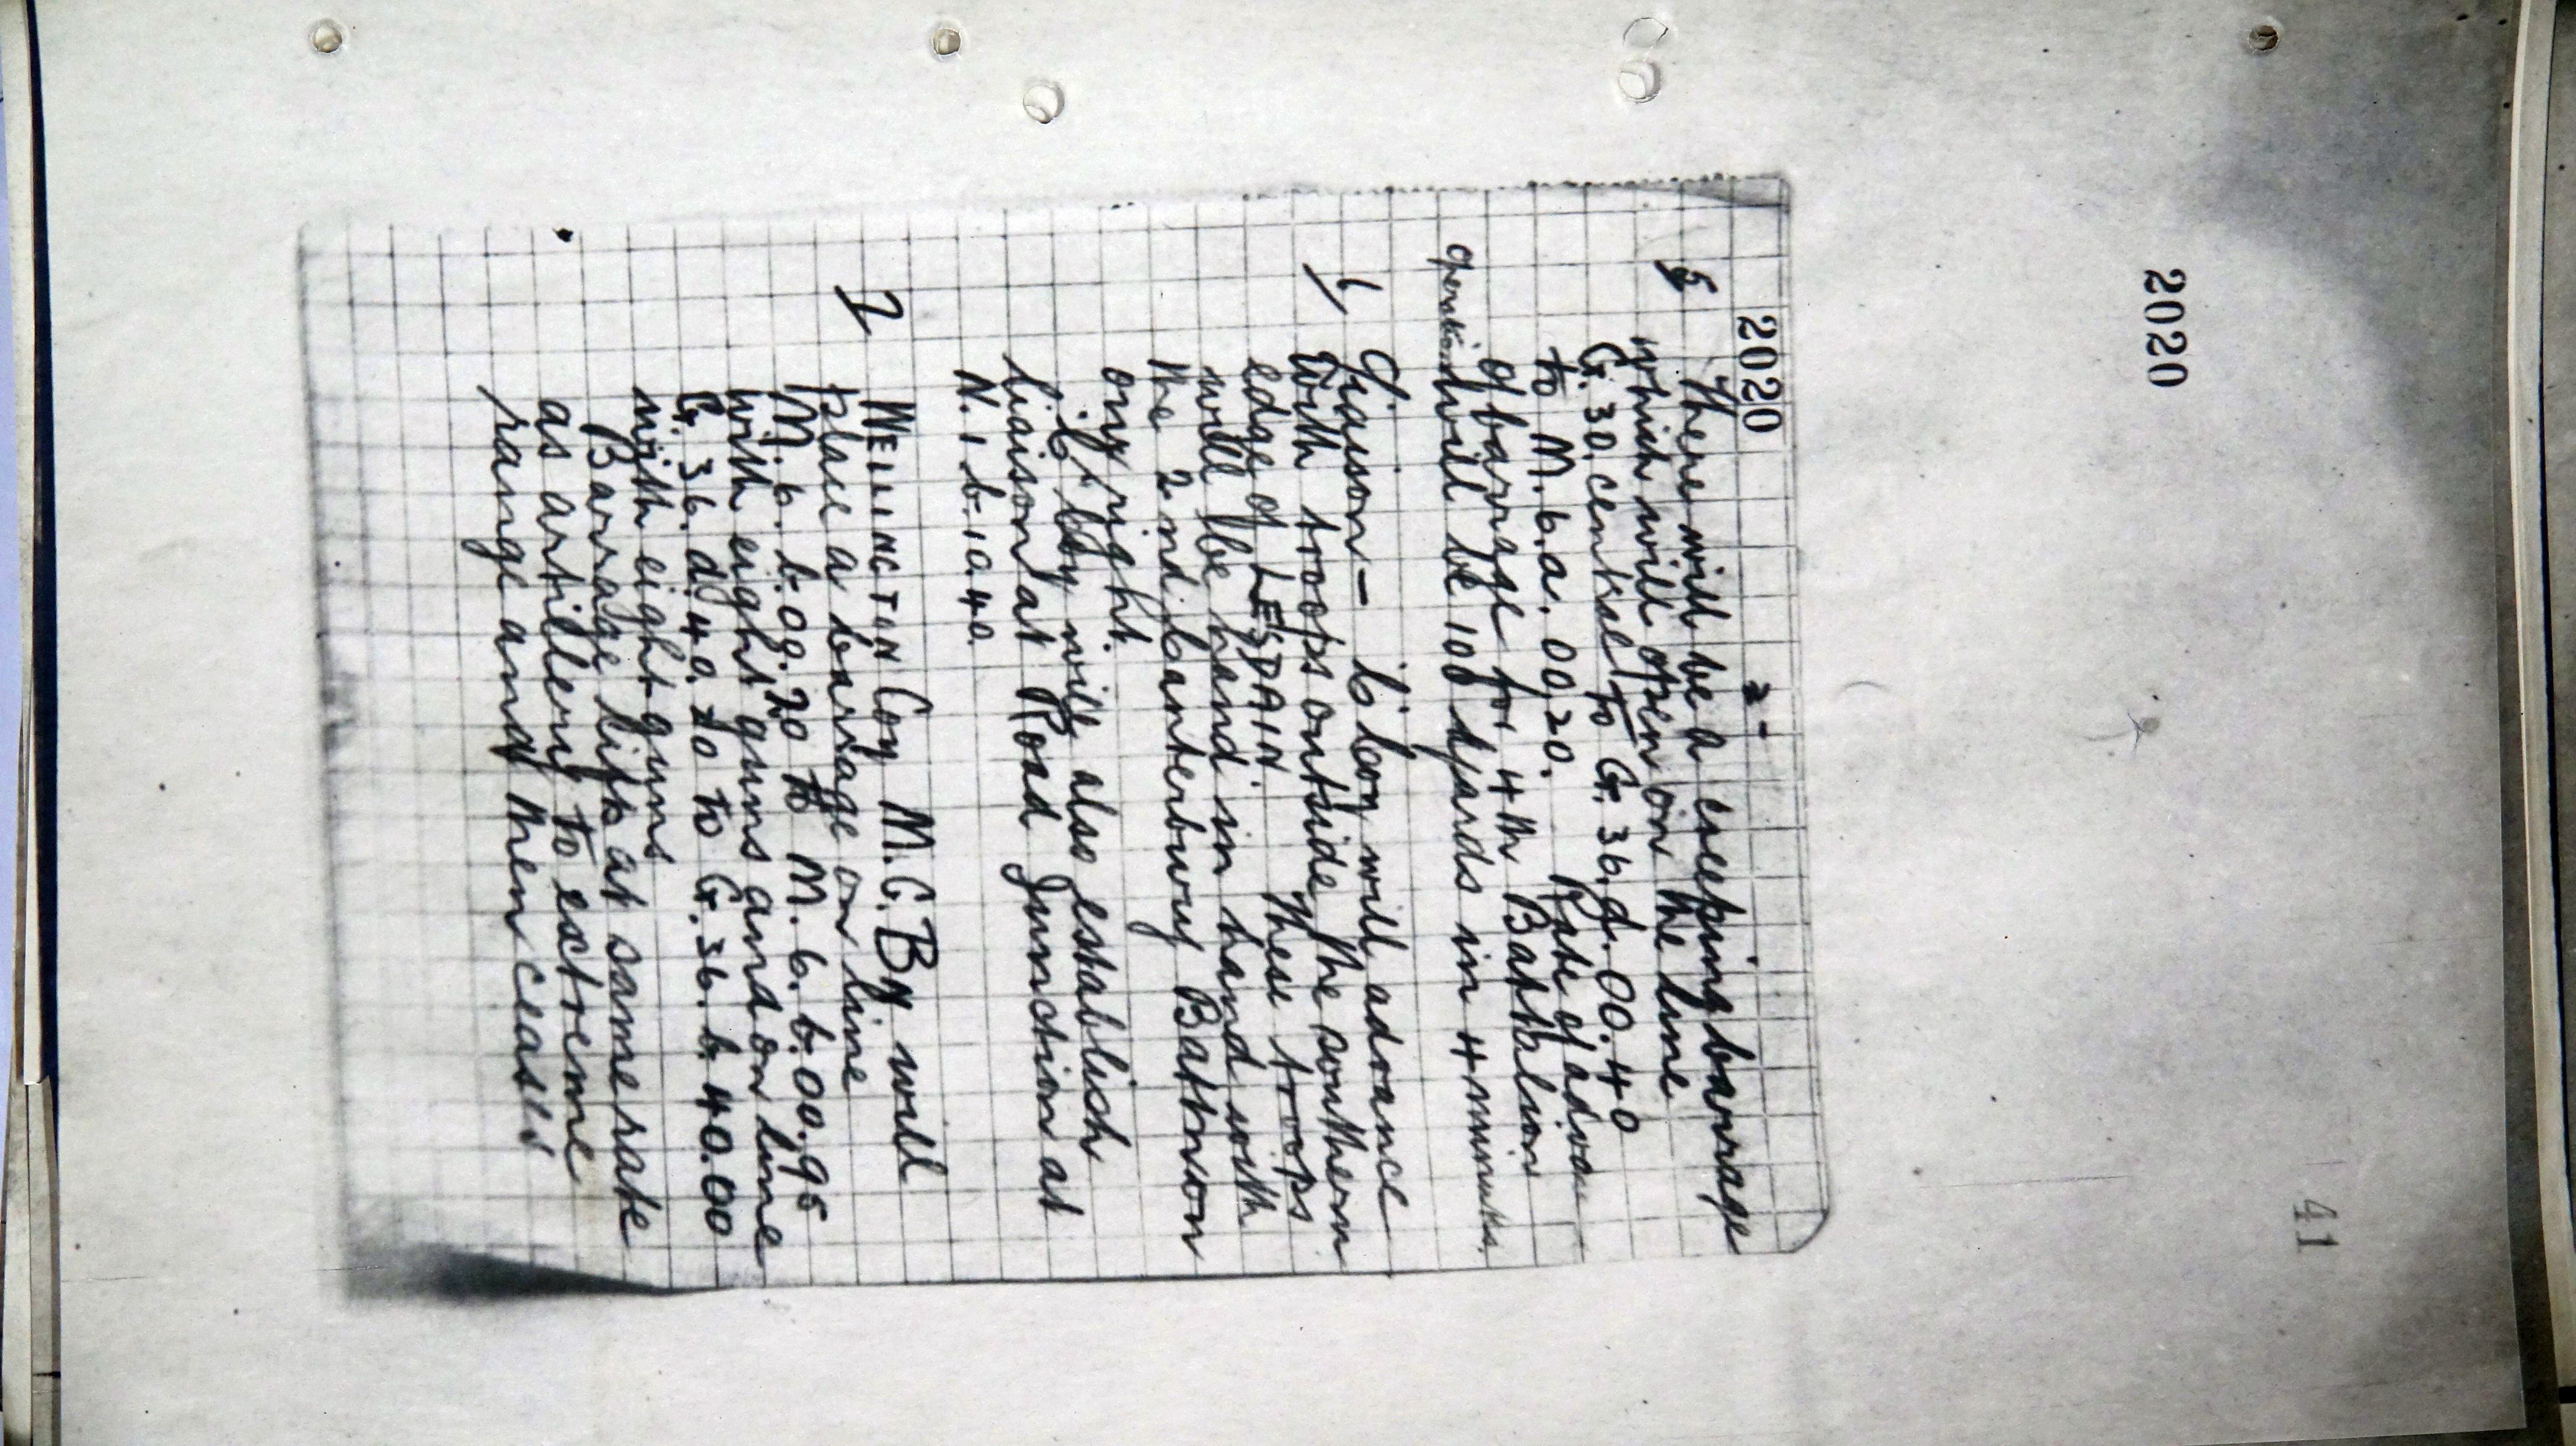 2020
41
2020
2-
5 There will be a creeping barrage
which will open on the line
G. 30. central to G. 36. d. 00. 40
to M. 6. a. 00. 20. Rate of advan
of barrage for 4th Battalion
operation will be 100 yards in 4 minutes.
6 Liaison - "C" Coy will advance
with troops outside the southern
edge of LESDAIN. These troops
will be hand in hand with
the 2nd Canterbury Battn on
our right.
"C" Coy will also establish
liaison at Road Junction at
N. 1 b. 10. 40.
7 WELLINGTON Coy M.G. BN will
place a barrage on line
M. 6. b. 09. 20 to M. 6. b. 00. 95
with eight guns and on line
G. 36. d. 40. 20 to G. 36. b. 40. 00
with eight guns
Barrage lifts at same rate
as artillery to extreme
range and then ceases